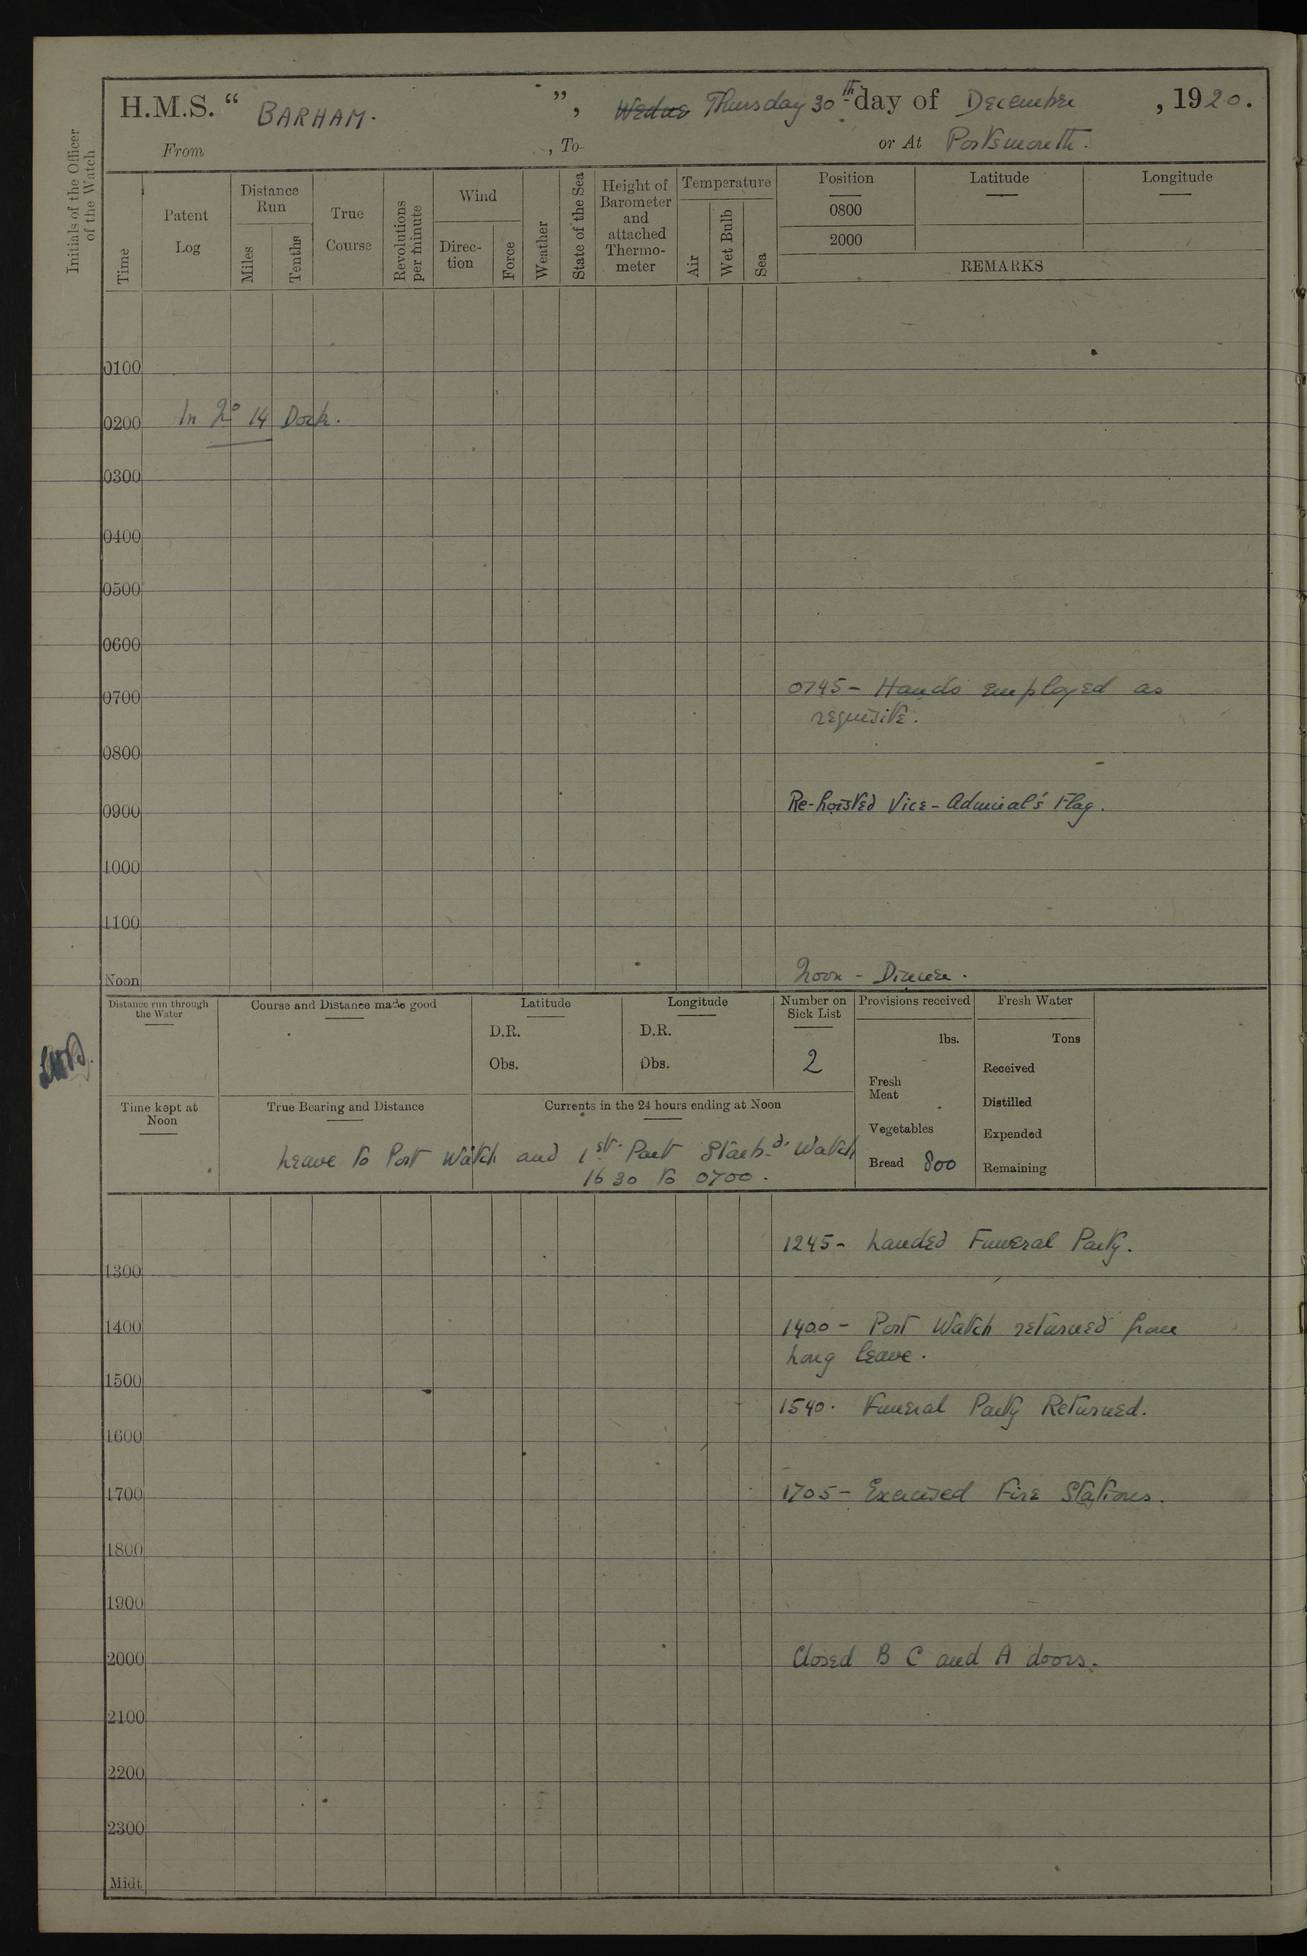 H.M.S. “ BARHAM. ”, Wednes Thursday 30th day of December , 1920.
From , To or At Portsmouth.
Initials of the Officer of the Watch
Time
Patent Log
Distance Run
Miles
Tenths
True Course
Revolutions per minute
Wind
Direc-tion
Force
Weather
State of the Sea
Height of Barometer and attached Thermo-meter
Temperature
Air
Wet Bulb
Sea
Position Latitude Longitude
0800
2000
REMARKS
0100
In No 14 Dock.
0200
0300
0400
0500
0600
0745 - Hands employed as
0700
requisite.
0800
Re-hoisted Vice-Admiral's Flag.
0900
1000
1100
Noon - Dinner.
Noon
Distance run through the Water
Course and Distance made good
Latitude
D.R.
Obs.
Longitude
D.R.
Obs.
Number on Sick List
2
Provisions received
lbs.
Fresh Meat
Vegetables
Bread 800
Fresh Water
Tons
Received
Distilled
Expended
Remaining
Time kept at Noon
True Bearing and Distance
Currents in the 24 hours ending at Noon
Leave to Port Watch and 1st Part Starbd Watch
1630 to 0700.
1245 - Landed Funeral Party.
1300
1400 - Port Watch returned from
1400
Long leave.
1500
1540. Funeral Party Returned.
1600
1705 - Exercised Fire Stations.
1700
1800
1900
Closed B C and A doors.
2000
2100
2200
2300
Midt.